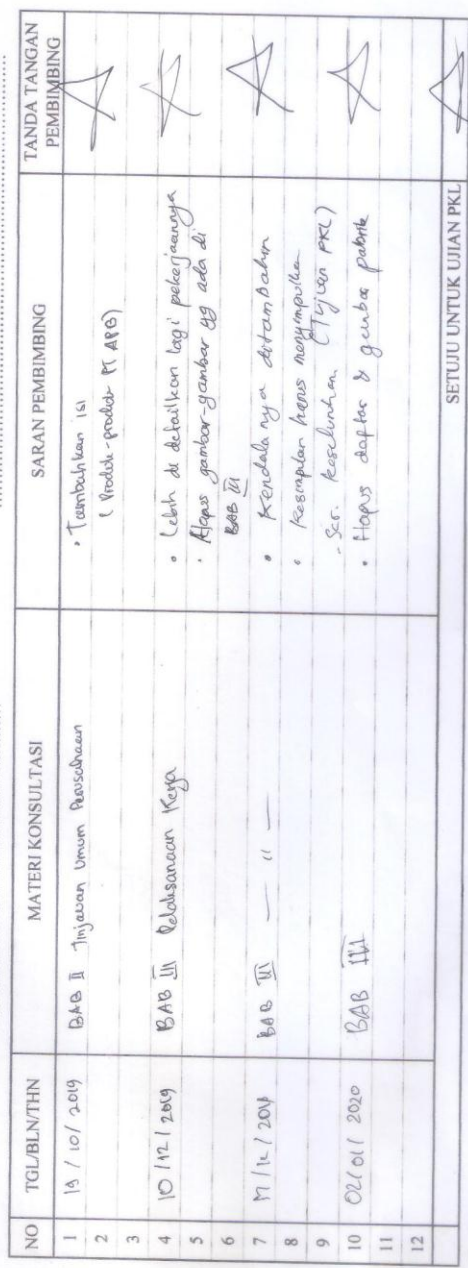 NO TGL/BLN/THN MATERI KONSULTASI SARAN PEMBIMBING TANDA TANGAN PEMBIMBING
1 19 / 10 / 2019 BAB II Tinjauan Umum Perusahaan • Tambahkan isi
2 ( Produk-produk PT APB)
3
4 10 / 12 / 2019 BAB III Pelaksanaan Kerja • Lebih di detailkan lagi pekerjaannya
5 • Hapus gambar-gambar yg ada di
6 BAB III
7 BAB III — " — • Kendala nya ditambahkan
8 • Kesimpulan harus menyimpulkan
9 - Scr. keseluruhan (Tujuan PKL)
10 02/ 01/ 2020 BAB III • Hapus daftar & gambar pabrik
11
12
SETUJU UNTUK UJIAN PKL